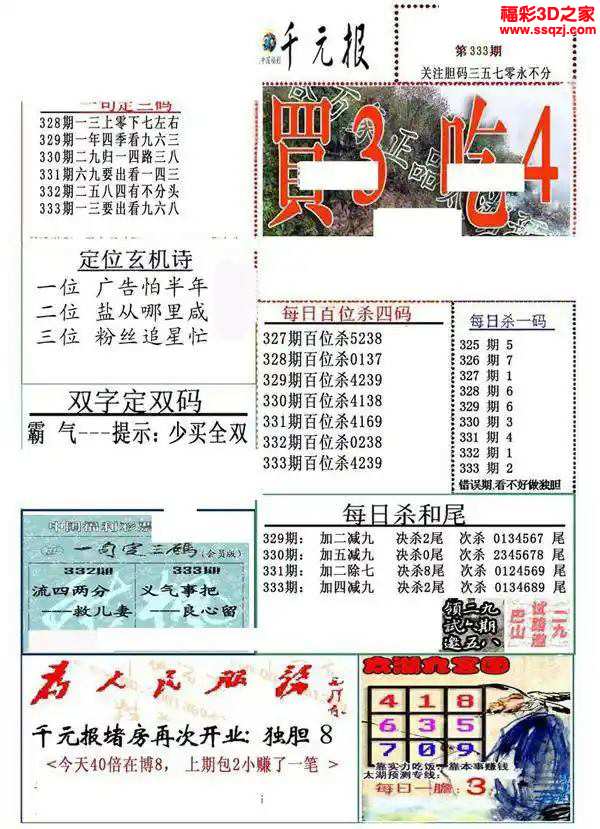 福彩3D之家
www.ssqzj.com
中国福彩
千元报
第333期
关注胆码三五七零永不分
一句定三码
328期一三上零下七左右
329期一年四季看九六三
330期二九归一四路三八
331期六九要出看一四三
332期二五八四有不分头
333期一三要出看九六八
買3 吃4
定位玄机诗
一位 广告怕半年
二位 盐从哪里咸
三位 粉丝追星忙
双字定双码
霸 气---提示:少买全双
每日百位杀四码
327期百位杀5238
328期百位杀0137
329期百位杀4239
330期百位杀4138
331期百位杀4169
332期百位杀0238
333期百位杀4239
每日杀一码
325 期 5
326 期 7
327 期 1
328 期 6
329 期 6
330 期 3
331 期 4
332 期 1
333 期 2
错误期,看不好做独胆
每日杀和尾
329期: 加二减九 决杀2尾 次杀 0134567 尾
330期: 加五减九 决杀0尾 次杀 2345678 尾
331期: 加二除七 决杀8尾 次杀 0124569 尾
333期: 加四减九 决杀2尾 次杀 0134689 尾
中国福利彩票
一句定三码(会员版)
332期
流四两分
——救儿妻
333期
义气事把
——良心留
为人民服务
千元报堵房再次开业:独胆 8
<今天40倍在博8, 上期包2小赚了一笔 >
太湖九宫图
4 1 8
6 3 5
7 0 9
靠实力吃饭,靠本事赚钱
太湖预测专线:
每日一胆: 3